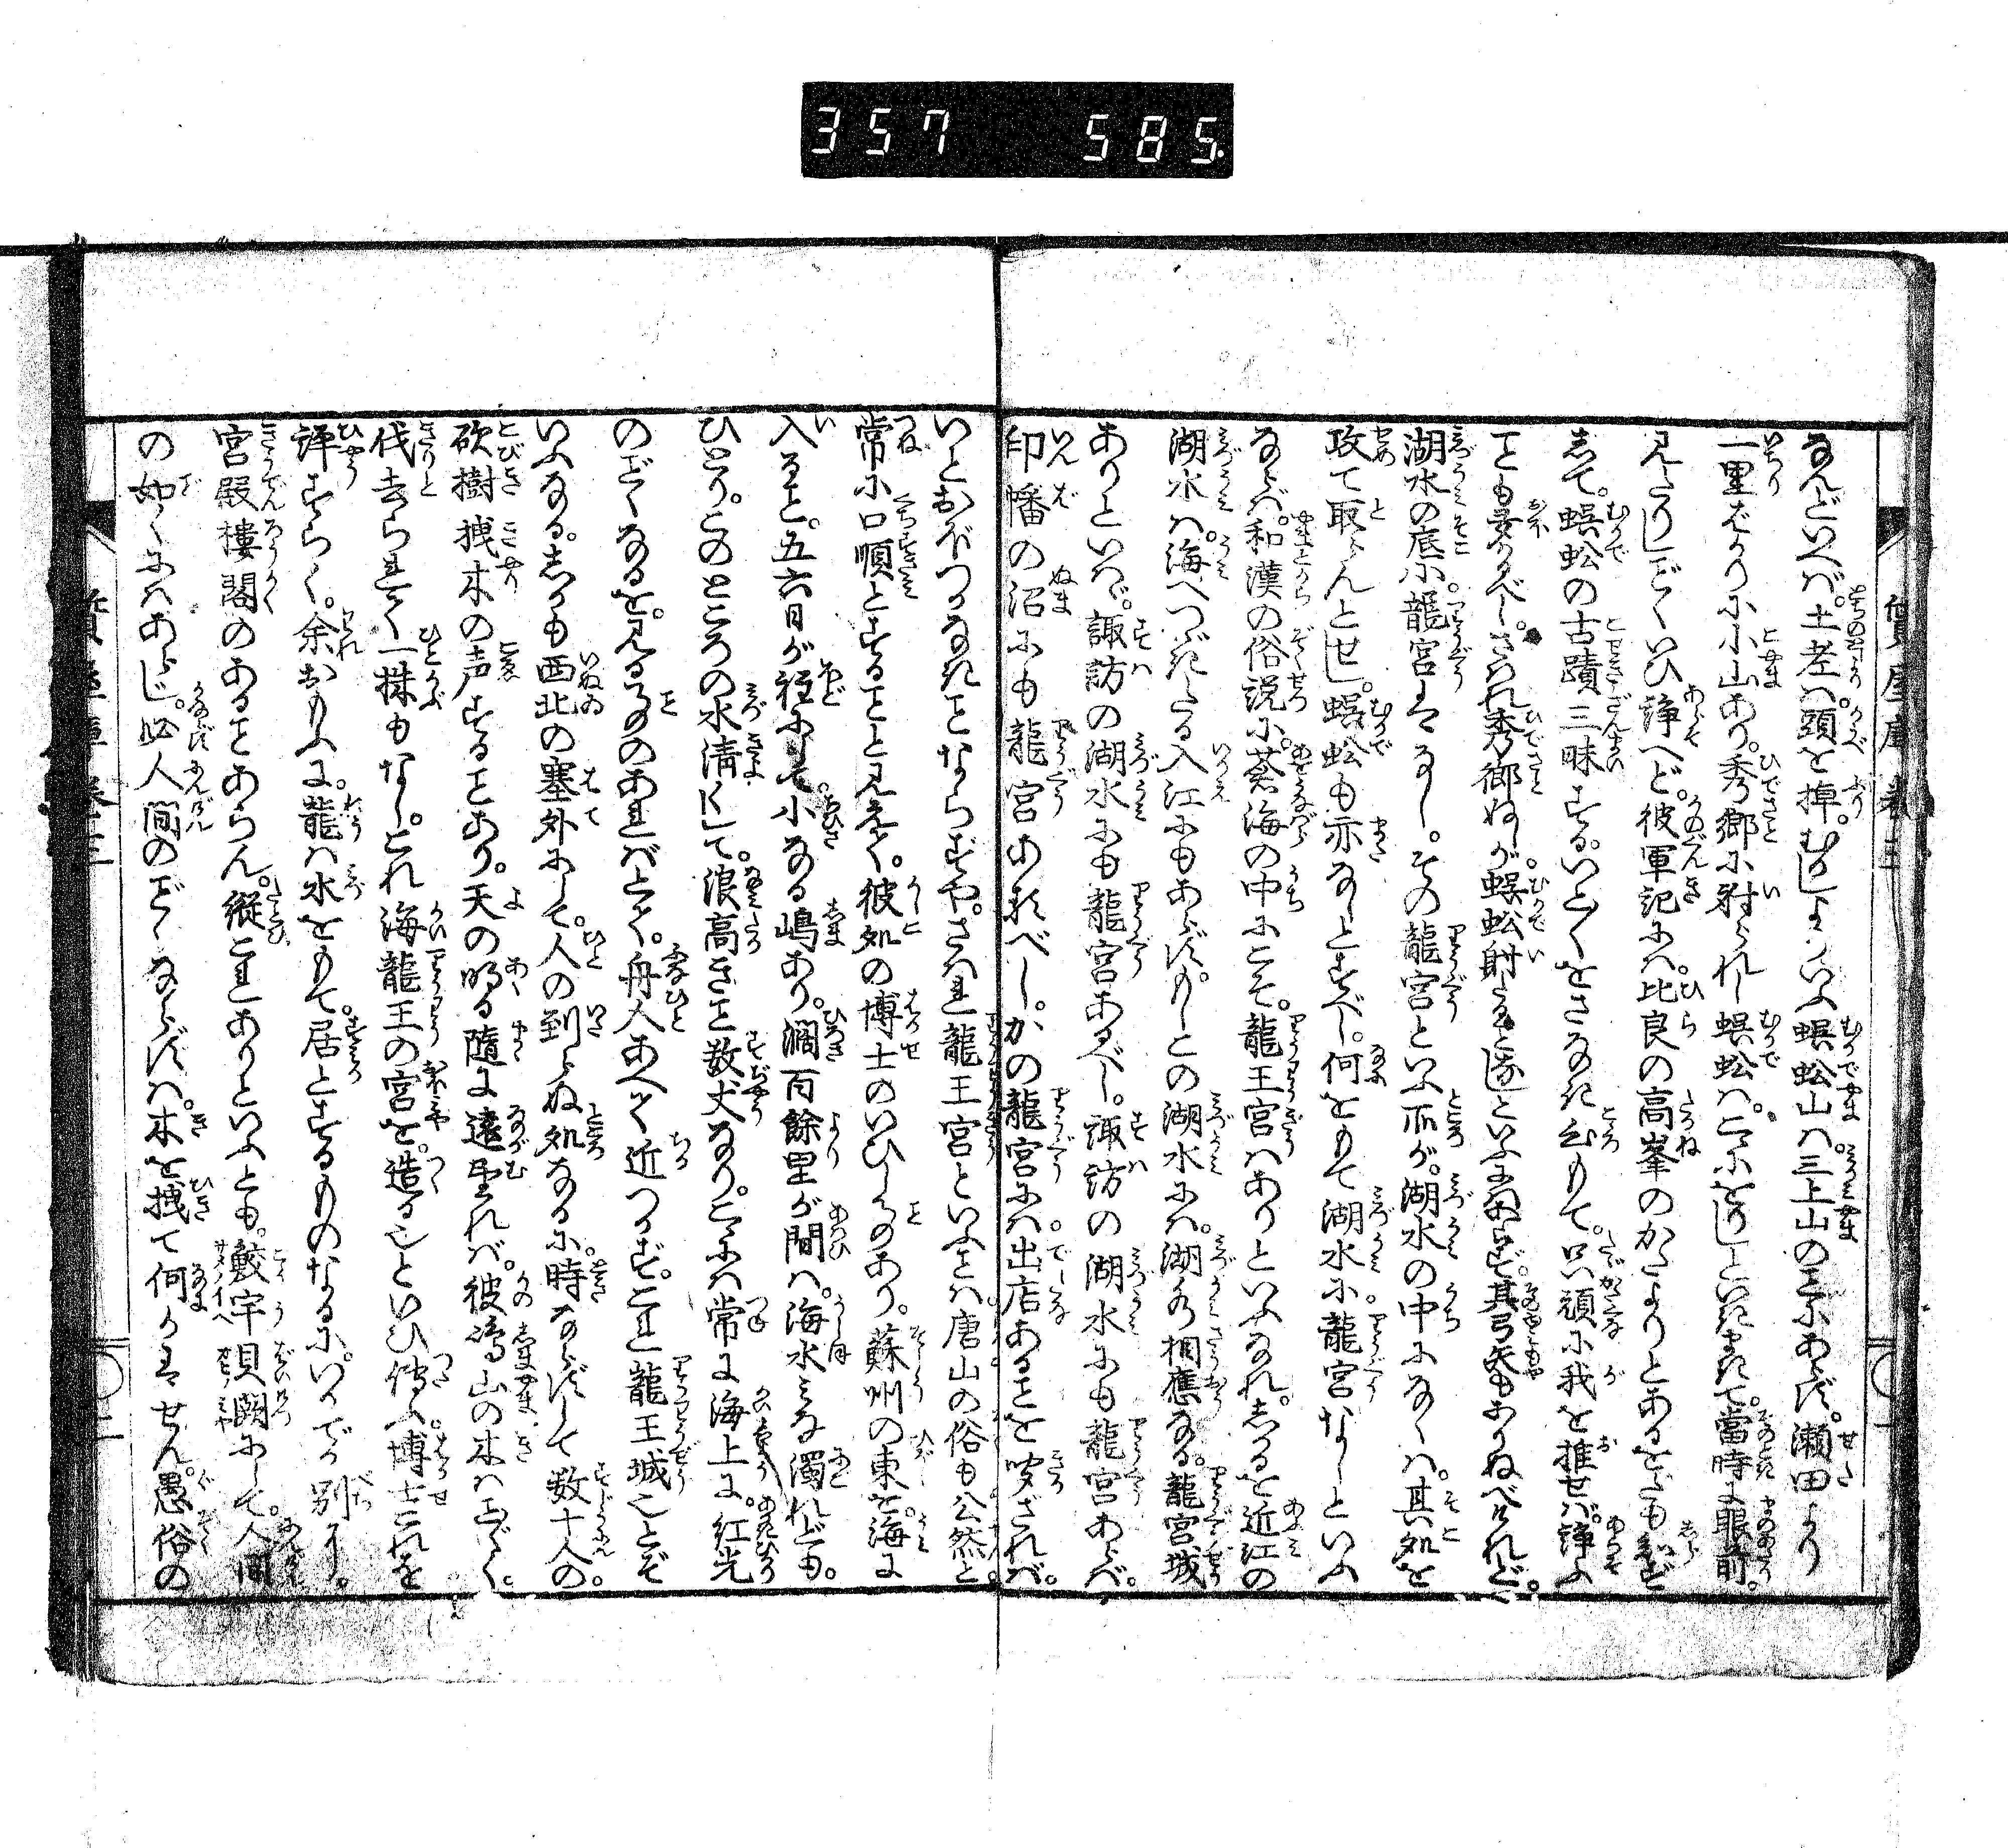 357 585
質屋庫 巻三
なんどいへば。土老は頭を掉。むかしよりいふ蜈蚣山は三上山の事にあらず。瀬田より
一里ばかりに小山あり。秀郷に射られし蜈蚣は。こゝにをりしといきまきて。當時ま眼前。
見たりしごくいひ諍へど。彼軍記には。比良の高峯のかたよりとあるをだもしらず
して。蜈蚣の古蹟三昧する。いと〳〵をさなき心もて。只頑に我を推せば。諍ふ
ことも要なかるべし。さはれ秀郷ぬしが。蜈蚣射たることなしといふにあらず。其弓矢もあるべけれど。
湖水の底に。龍宮はなし。その龍宮といふ所が。湖水の中になくは。其処を
攻て取らんとせし。蜈蚣も亦なしとすべし。何をもて湖水に。龍宮なしといふ
ならば。和漢の俗説に。蒼海の中にこそ。龍王宮はありといふなれ。しかるを近江の
湖水は。海へつゞきたる入江にもあらず。もしこの湖水には。湖水相應なる。龍宮城
ありといはゞ。諏訪の湖水にも龍宮あるべし。諏訪の湖水にも龍宮あらば。
印幡の沼にも龍宮あるべし。かの龍宮には。出店あることを聞ざれば。
いとおぼつかなきことならずや。さはれ龍王宮といふことは唐山の俗も公然と
常に口順とすることと見えて。彼処の博士のいひしものあり。蘇州の東。海に
入ること。五六日が程にして。小なる嶋あり。濶百餘里が間は。海水みな濁れども。
ひとり。このところの水清くして。浪高きこと数丈なり。こゝには常に海上に。紅光
のごくなるを。見るものあればとて。舟人あへて近つかず。これ龍王城也とぞ
いふなる。しかも西北の塞外にして。人の到らぬ処なるに。時ならずして数十人の。
砍樹拽木の声することあり。天の明る隨に遠望れば。彼嶋山の木はこと〴〵く。
伐去られて一株もなし。これ海龍王の宮を。造る也といひ傳ふ。博士これを
評すらく。余おもふに。龍は水をもて。居とするものなるに。いかでか別に。
宮殿樓閣のあることあらん。縦これありといふとも。鮫宇貝闕にして。人間
の如くにはあらじ。必人間のごくならずは。木を拽て何かはせん。愚俗の